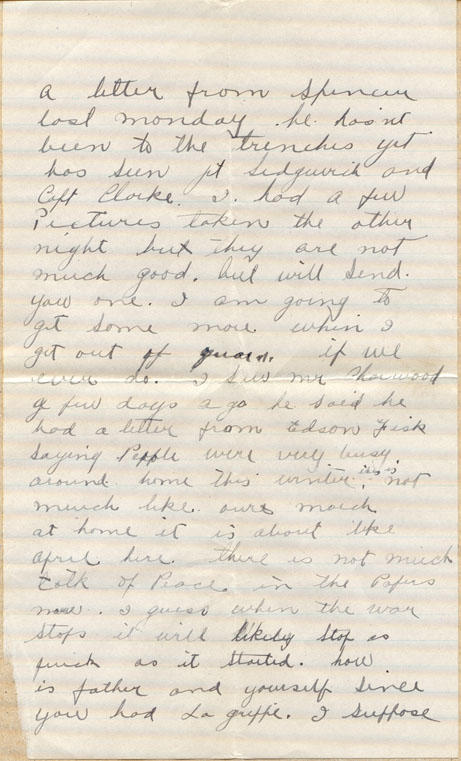 a letter from Spencer
last monday. he hasnt
been to the trenches yet
has seen pt Sedgwick and
Capt Clarke. I. had a few
Pictures taken the other
night but they are not
much good. but will send.
you one. I am going to
get some more when I
get out of quarn. if we
ever do. I see mr Charwood
a few days ago he said he
had a letter from Edson Fisk
saying People were very busy.
around home this winter, its is not
much like ours march
at home it is about like
april here. there is not much
talk of Peace. in the Papers
now. I guess when the war
stops it will likely stop as
quick as it started. how
is father and yourself since
you had La grippe. I suppose